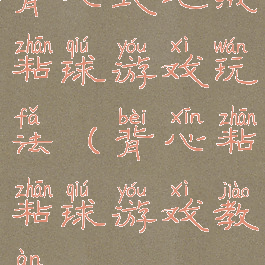 zhān qiú yóu xì wán
粘球游戏玩
fǎ bèi xīn zhān
法（背心粘
zhān qiú yóu xì jiào
粘球游戏教
àn